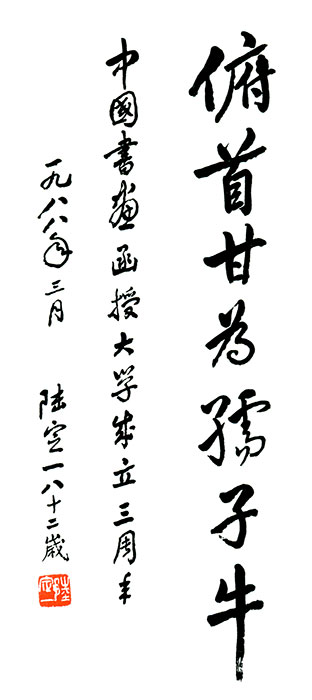 俯首甘为孺子牛
中國書画函授大学成立三周年
一九八八年三月 陆定一八十二歲
陸定一